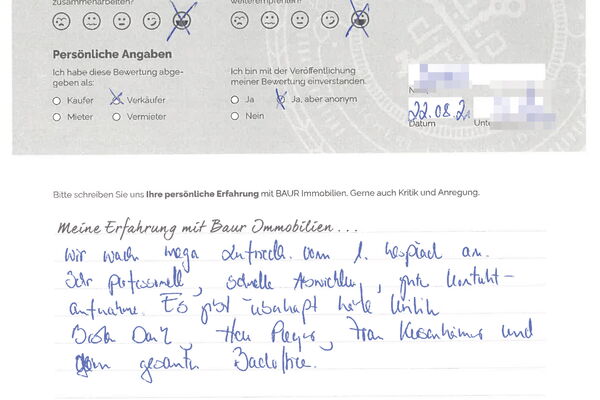 zusammenarbeiten?
weiterempfehlen?
Persönliche Angaben
Ich habe diese Bewertung abge-
geben als:
Käufer
Verkäufer
Mieter
Vermieter
Ich bin mit der Veröffentlichung
meiner Bewertung einverstanden.
Ja
Ja, aber anonym
Nein
22.08.2
Datum
Unte
Bitte schreiben Sie uns Ihre persönliche Erfahrung mit BAUR Immobilien. Gerne auch Kritik und Anregung.
Meine Erfahrung mit Baur Immobilien...
Wir waren mega zufrieden. Vom 1. Gespräch an.
Sehr professionell, schnelle Abwicklung, gute Kontakt-
aufnahme. Es gibt überhaupt keine Kritik
Besten Dank, Herr, Frau und
dem gesamten Backoffice.